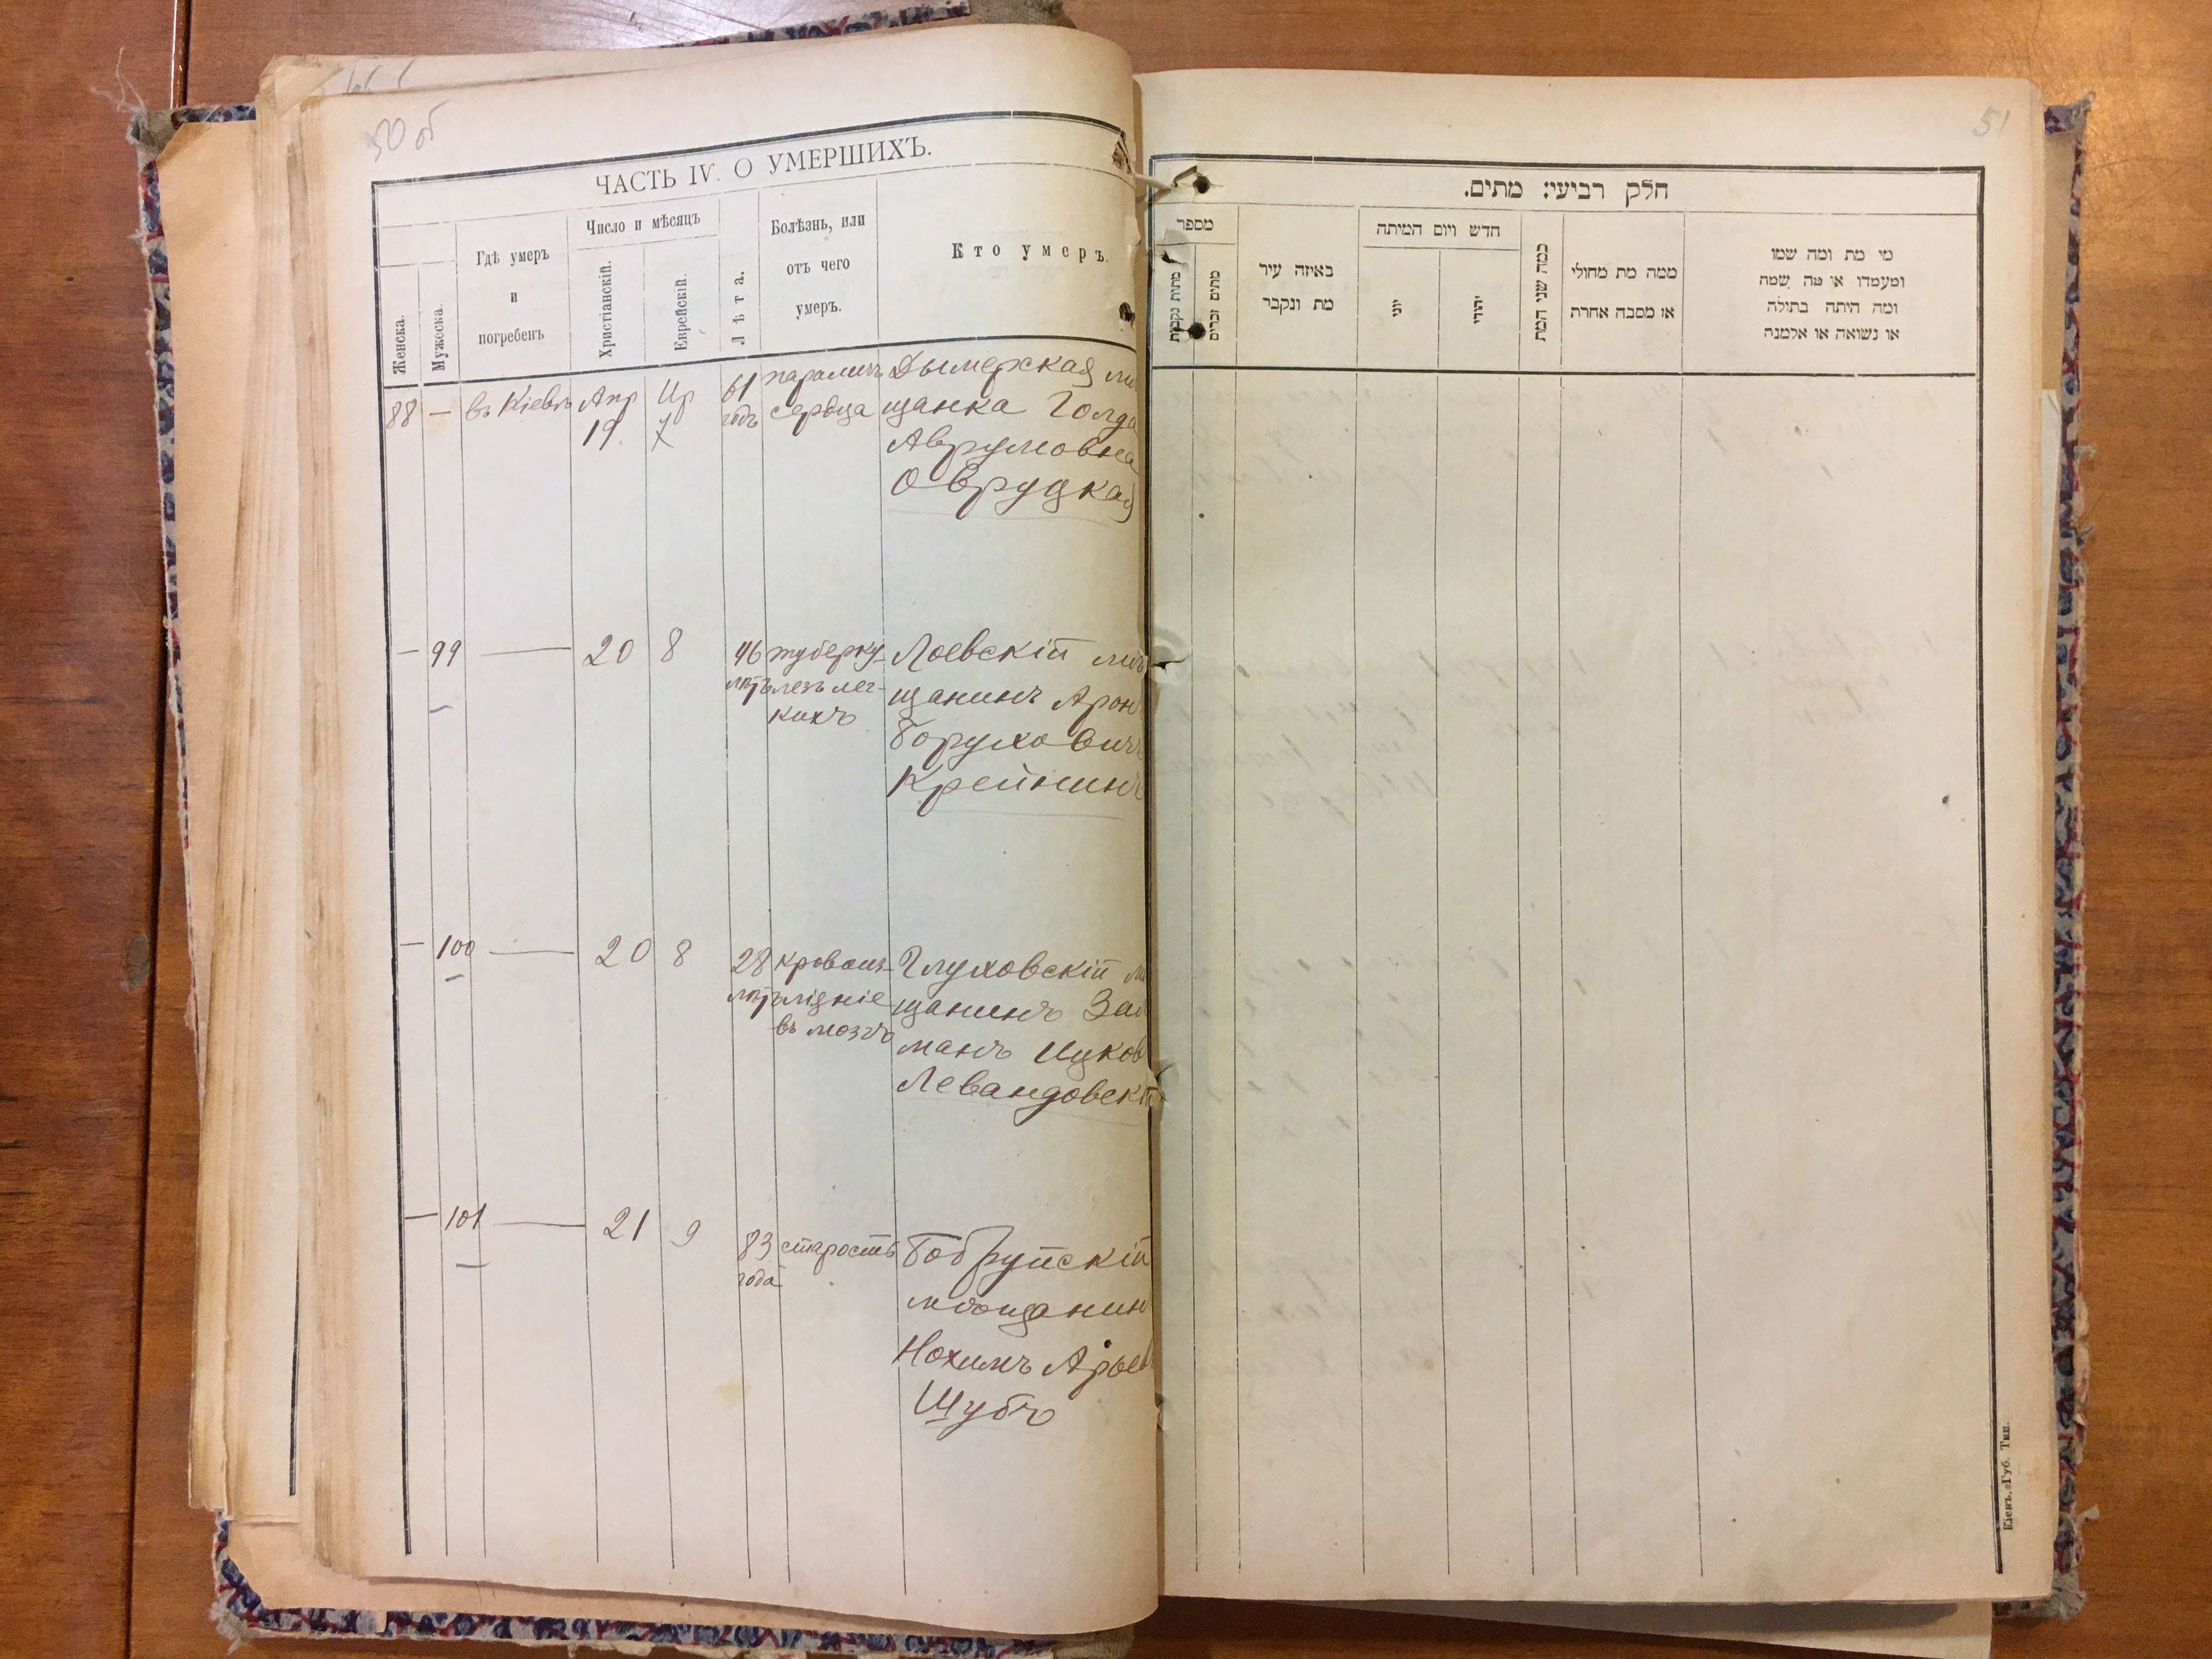 50 об
ЧАСТЬ IV. О УМЕРШИХЪ.
Женска.
Мужеска.
Гдѣ умеръ
и
погребенъ
Число и мѣсяцъ
Христіанскій.
Еврейскій.
Лѣта.
Болѣзнь, или
отъ чего
умеръ.
Кто умеръ.
88 — въ Кіевѣ Апр 19. Ир 7
61 годъ
параличъ
сердца
Дымерская мѣ
щанка Голда
Аврумовна
Овруцкая
— 99 — 20 8
46 лѣтъ
туберку-
лезъ лег-
кихъ
Лоевскій мѣ
щанинъ Арон
Боруховичъ
Крейнинъ
— 100 — 20 8
28 лѣтъ
кровоиз-
ліяніе
въ мозгъ
Глуховскій м
щанинъ Зал
манъ Ицков
Левандовскій
— 101 — 21 9
83 года
старость
Бобруйскій
мѣщанин
Нохимъ Арьев
Шубъ
51
חלק רביעי: מתים.
מספר
מתות נקבות
מתים זכרים
באיזה עיר
מת ונקבר
חדש ויום המיתה
יוני
יהודי
כמה שני המת
ממה מת מחולי
או מסבה אחרת
מי מת ומה שמו
ומעמדו או מה שמה
ומה היתה בתולה
או נשואה או אלמנה
Кіевъ. Губ. Тип.